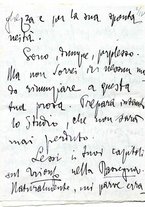 e per la sua sponta
neità.
Sono, dunque, perplesso.
Ma non vorrei in nessun mo
do rinunziare a questa
tua prova. Prepara intanto
lo studio, che non sarà
mai perduto.
Lessi i tuoi capitoli
sul nella Rassegna
Naturalmente, mi parve